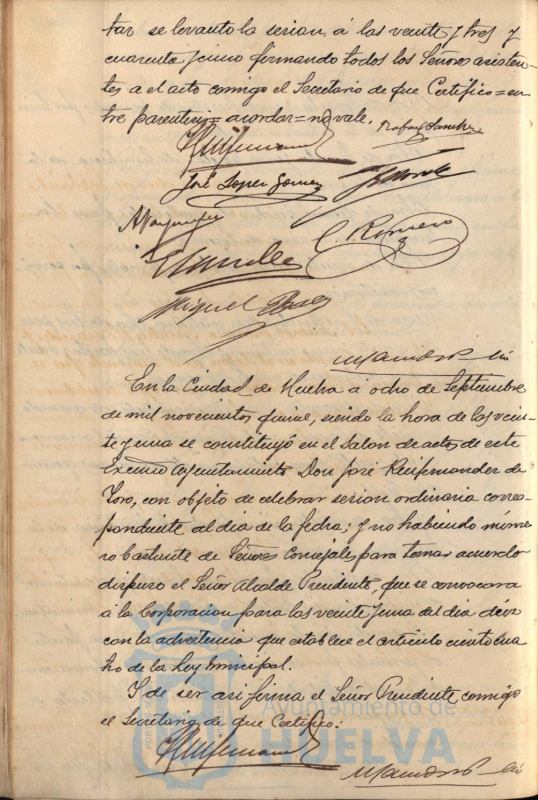 tar se levanto la sesion á las veinte y tres y
cuarenta y cinco firmando todos los Señores asisten-
tes a el acto conmigo el Secretario de que Certifico=en-
tre parentesis=acordar=no vale.
Rafael Sanchez
José Lopez Gomez
C. Romero
Miguel
En la Ciudad de Huelva á ocho de Septiembre
de mil novecientos quince, siendo la hora de las vein-
te y una se constituyó en el Salon de actos de este
Excmo Ayuntamiento Don José de
Toro, con objeto de celebrar sesion ordinaria corres-
pondiente al dia de la fecha; y no habiendo núme-
ro bastante de Señores Concejales para tomar acuerdo
dispuso el Señor Alcalde Presidente, que se convocara
á la Corporacion para las veinte y una del dia diez
con la advertencia que establece el articulo ciento cua-
tro de la Ley municipal.
Y de ser asi firma el Señor Presidente conmigo
el Secretario de que Certifico:
Ayuntamiento de
HUELVA